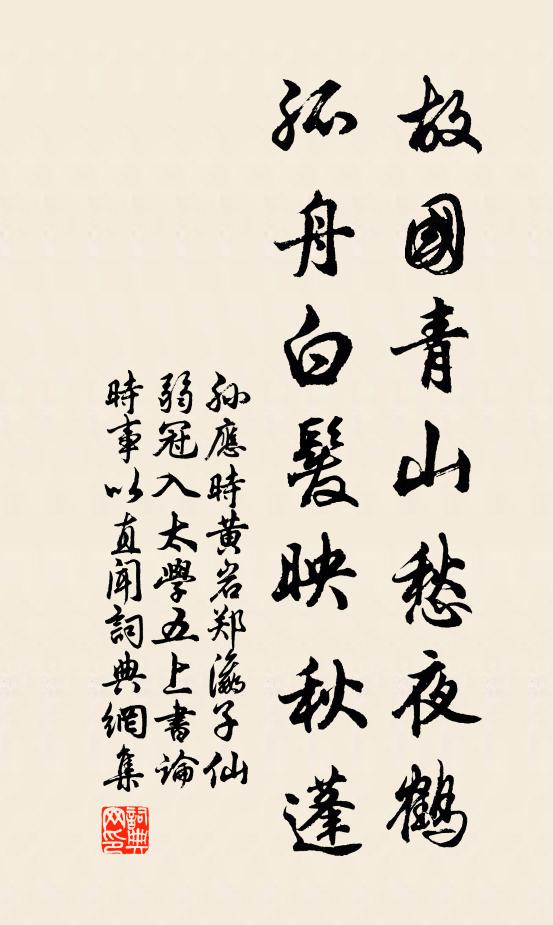 故國青山愁夜鶴
孤舟白髮映秋蓬
孙應時黄岩郑瀛子仙
弱冠入太學五上書論
時事以直聞詞典網集
詞典
网印